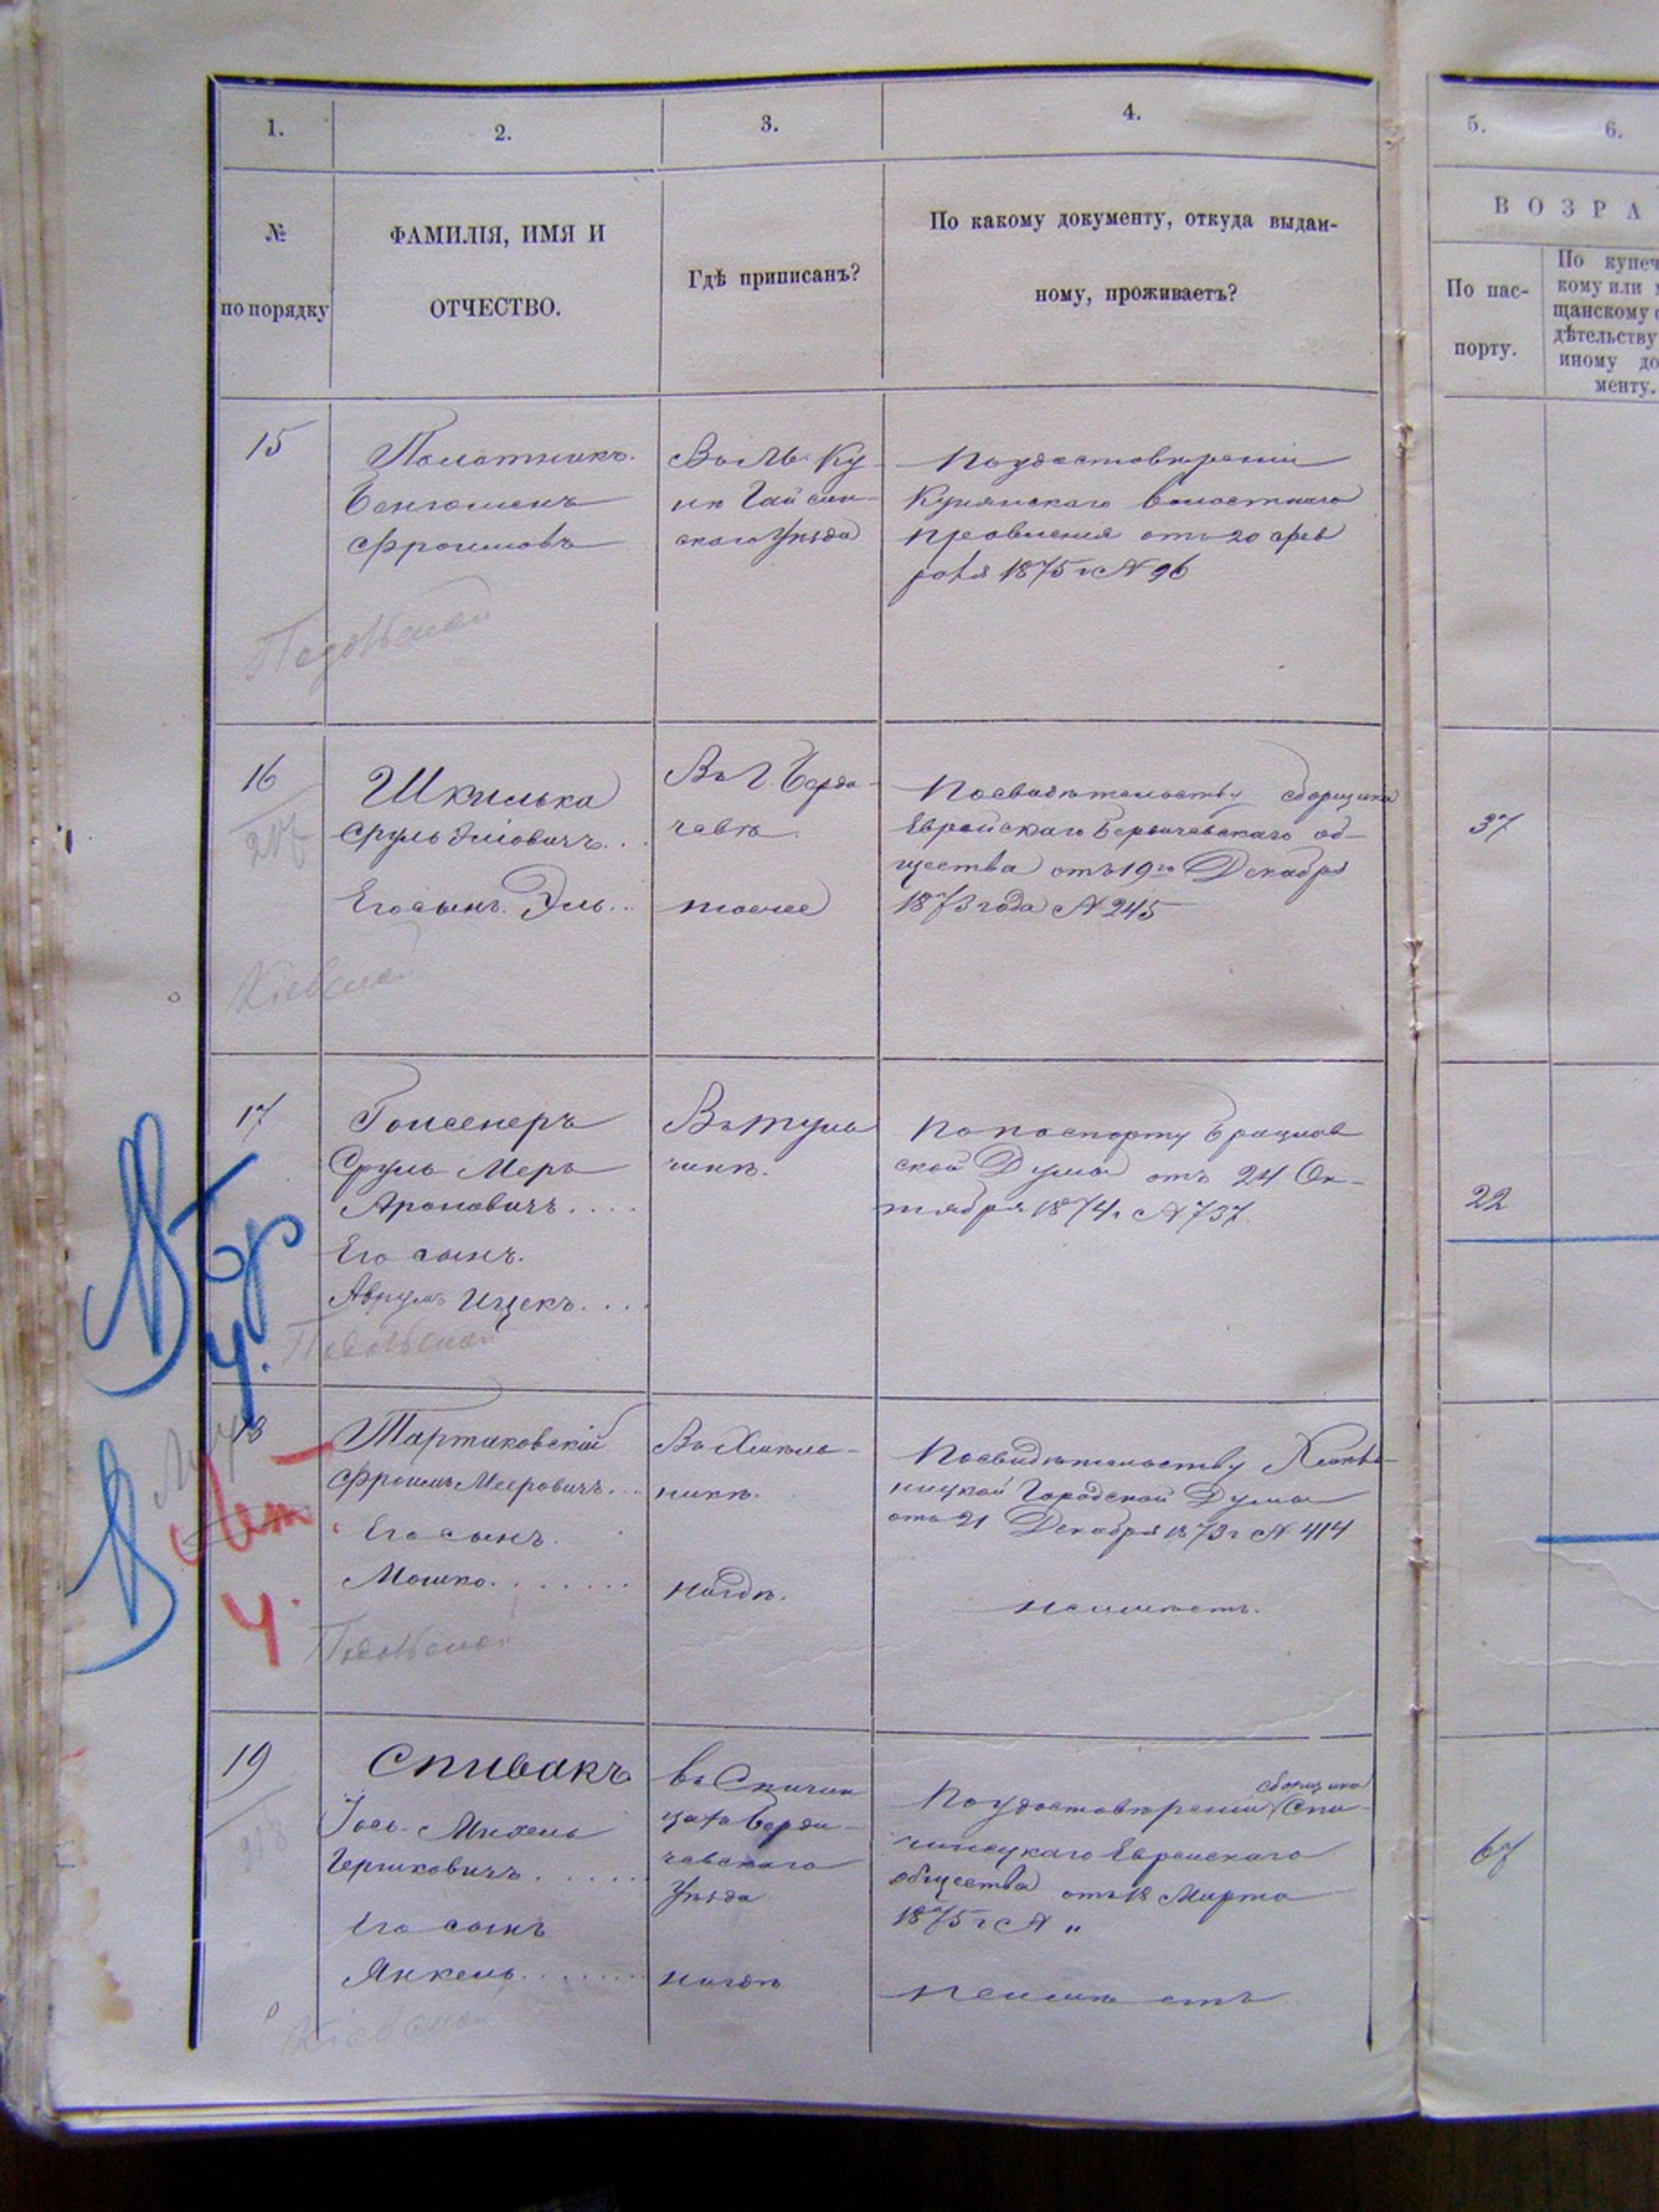 1.
2.
3.
4.
5.
6.
№
по порядку
ФАМИЛІЯ, ИМЯ И
ОТЧЕСТВО.
Гдѣ приписанъ?
По какому документу, откуда выдан-
ному, проживаетъ?
ВОЗРА
По пас-
порту.
По купеч
кому или
щанскому
дѣтельству
иному до
менту.
15
Полотникъ
Бенюменъ
Фроимовъ
Въ М. Ку-
нѣ Гайсин-
скаго Уѣзда
По удостовѣренію
Кунянскаго Волостнаго
правленія отъ 20 Фев
раля 1875 г № 96
Подольской
16
Шкилька
Сруль Эліовичъ...
Его сынъ Эль...
Въ Г. Берди-
чевѣ
тоже
По свидѣтельству сборщика
Еврейскаго Бердичевскаго об-
щества отъ 19го Декабря
1873 года № 245
37
Кіевской
17
Гойсенеръ
Сруль Меръ
Ароновичъ....
Его сынъ.
Аврумъ Ицекъ....
Въ Туль-
чинѣ.
По паспорту Брацлав
ской Думы отъ 24 Ок-
тября 1874 г № 737.
22
Подольской
18
Тартаковскій
Фроимъ Мееровичъ...
Его сынъ.
Мошко.......
Въ Хмѣль-
никѣ.
нигдѣ.
По свидѣтельству Хмѣль-
ницкой Городской Думы
отъ 21 Декабря 1873 г № 414
неимѣетъ.
Подольской
19
Спивакъ
Іось-Михель
Гершковичъ.....
Его сынъ
Янкель.......
въ Спичин
цахъ Берди-
чевскаго
Уѣзда
нигдѣ
По удостовѣренію сборщика Спи-
чинецкаго Еврейскаго
общества отъ 18 Марта
1875 г № "
неимѣетъ
67
Кіевской